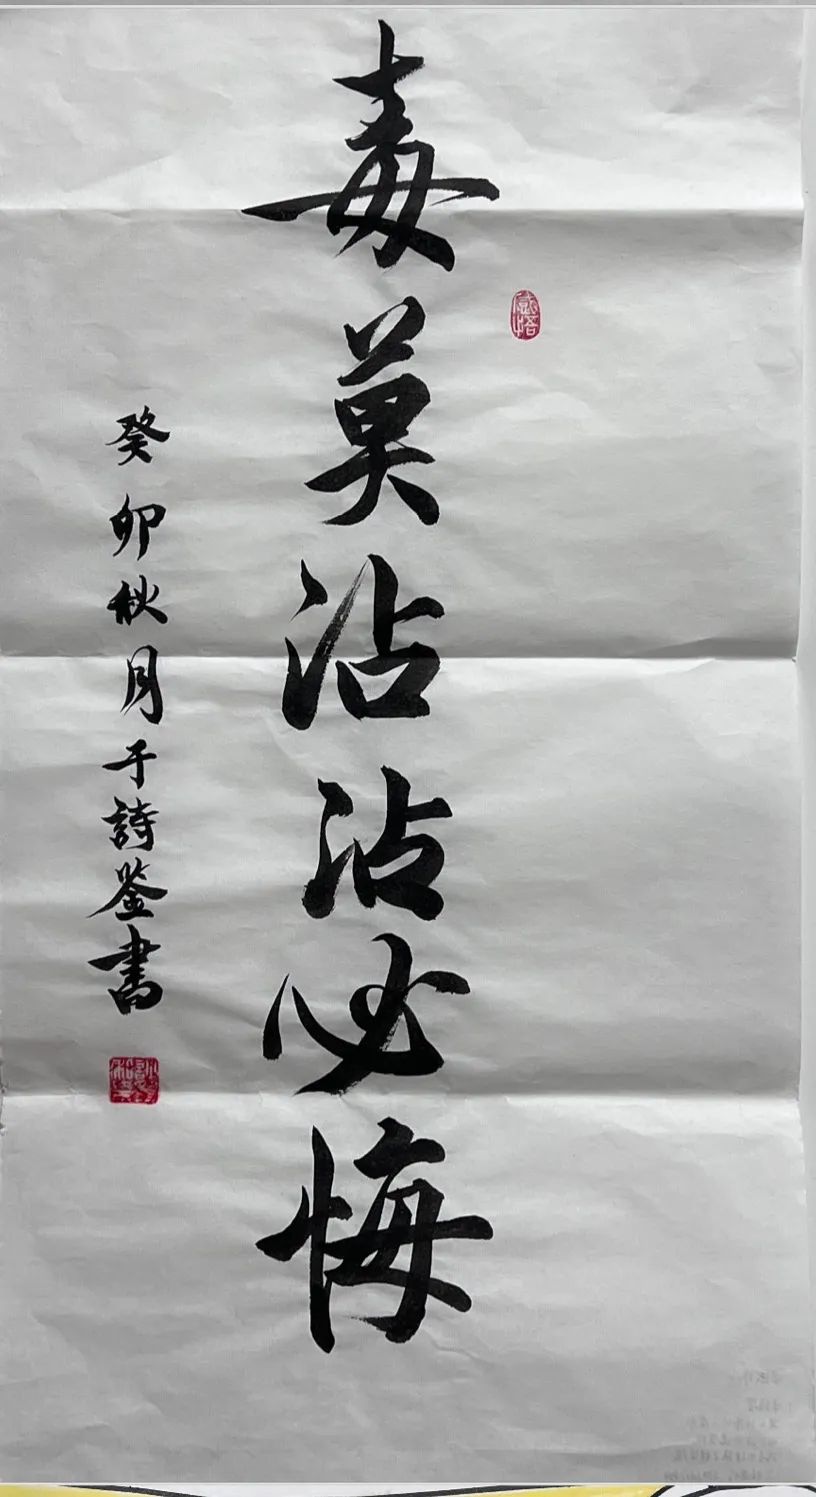 毒莫沾沾必悔
癸卯秋月于詩鉴書